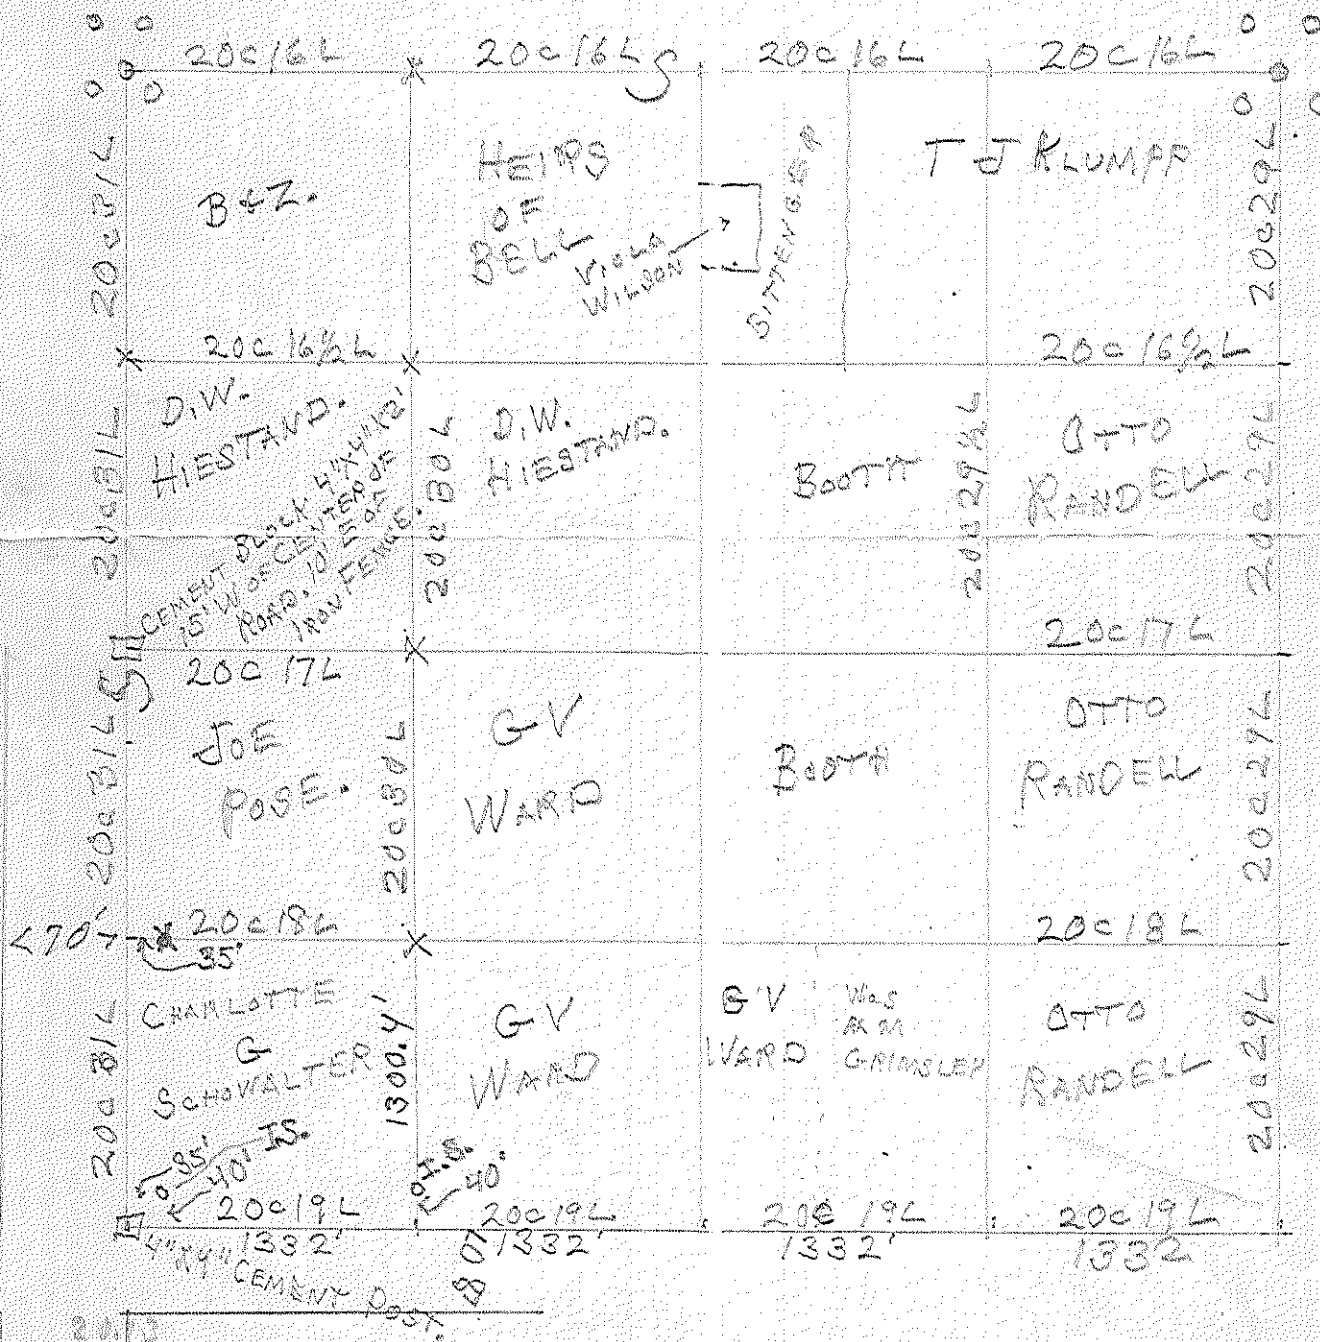 20c 16 L
20c 16 L
20c 16 L
20c 16 L
20c 31 L
B & Z.
HEIRS
OF
BELL
VIOLA
WILSON
T J KLUMPP
20c 29 L
20c 16½ L
20c 16½ L
20c 31 L
D.W.
HIESTAND.
CEMENT BLOCK 4"X4"X2'
15' W OF CENTER OF
ROAD. 10' E OF
IRON FENCE.
20c 30 L
D.W.
HIESTAND.
BOOTH
20c 29½ L
OTTO
RANDELL
20c 29 L
20c 17 L
20c 17 L
20c 31 L
JOE
POSE.
20c 30 L
G V
WARD
BOOTH
OTTO
RANDELL
20c 29 L
70'
20c 18 L
35'
20c 18 L
20c 31 L
CHARLOTTE
G
SCHOWALTER
1300.4'
G V
WARD
G V
WARD
WAS
GRIMSLEY
OTTO
RANDELL
20c 29 L
35'
40'
I.S.
I.S.
40'
20c 19 L
20c 19 L
20c 19 L
20c 19 L
1332'
1332'
1332'
1332
4"X4" CEMENT POST.